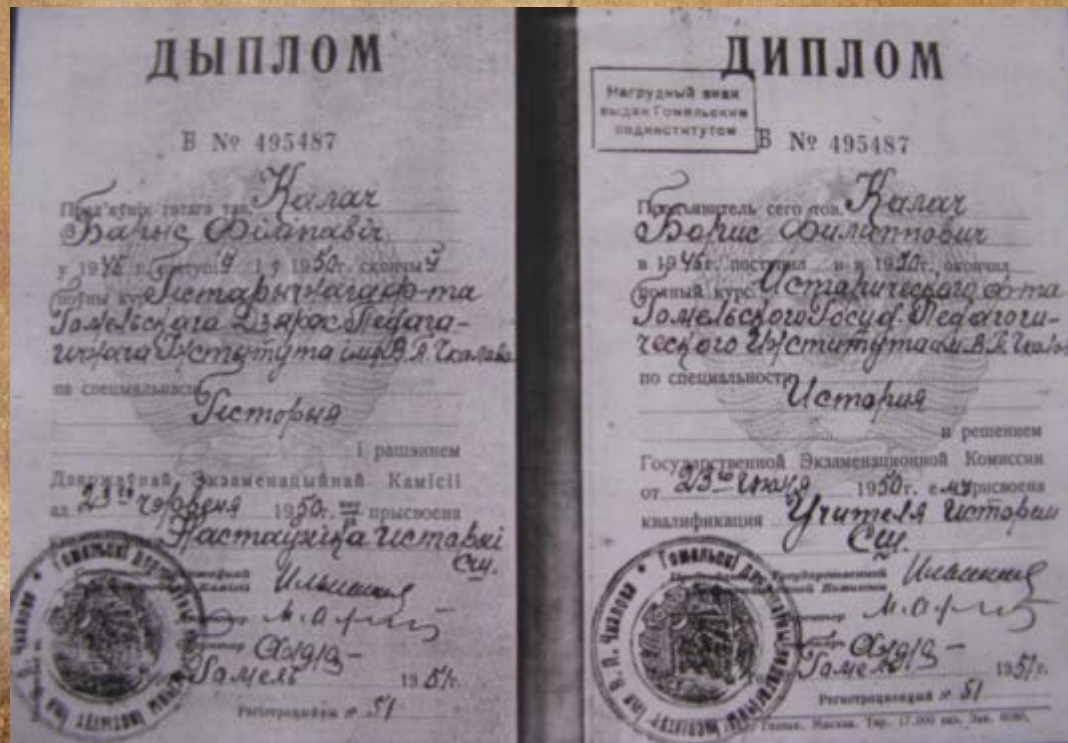 ДЫПЛОМ
Б № 495487
Прад'яўнік гэтага тав. Калач
Барыс Філіпавіч
у 1946 г. паступіў і ў 1950 г. скончыў
поўны курс Гістарычнага ф-та
Гомельскага Дзярж. Педага-
гічнага Інстытута імя В. П. Чкалава
па спецыяльнасці
Гісторыя
і рашэннем
Дзяржаўнай Экзаменацыйнай Камісіі
ад 23го чэрвеня 1950 г. прысвоена
Настаўніка гісторыі
СШ.
Гомель 1951 г.
Регистрационный № 51
ДИПЛОМ
Нагрудный знак
выдан Гомельским
пединститутом
Б № 495487
Предъявитель сего тов. Калач
Борис Филиппович
в 1946 г. поступил и в 1950 г. окончил
полный курс Исторического ф-та
Гомельского Госуд. Педагоги-
ческого Института им. В. П. Чкалова
по специальности
История
и решением
Государственной Экзаменационной Комиссии
от 23го Июня 1950 г. ему присвоена
квалификация Учителя истории
СШ.
Государственной
Гомель 1951 г.
Регистрационный № 51
Гознак. Москва. Тир. 17.000 экз. Зак.